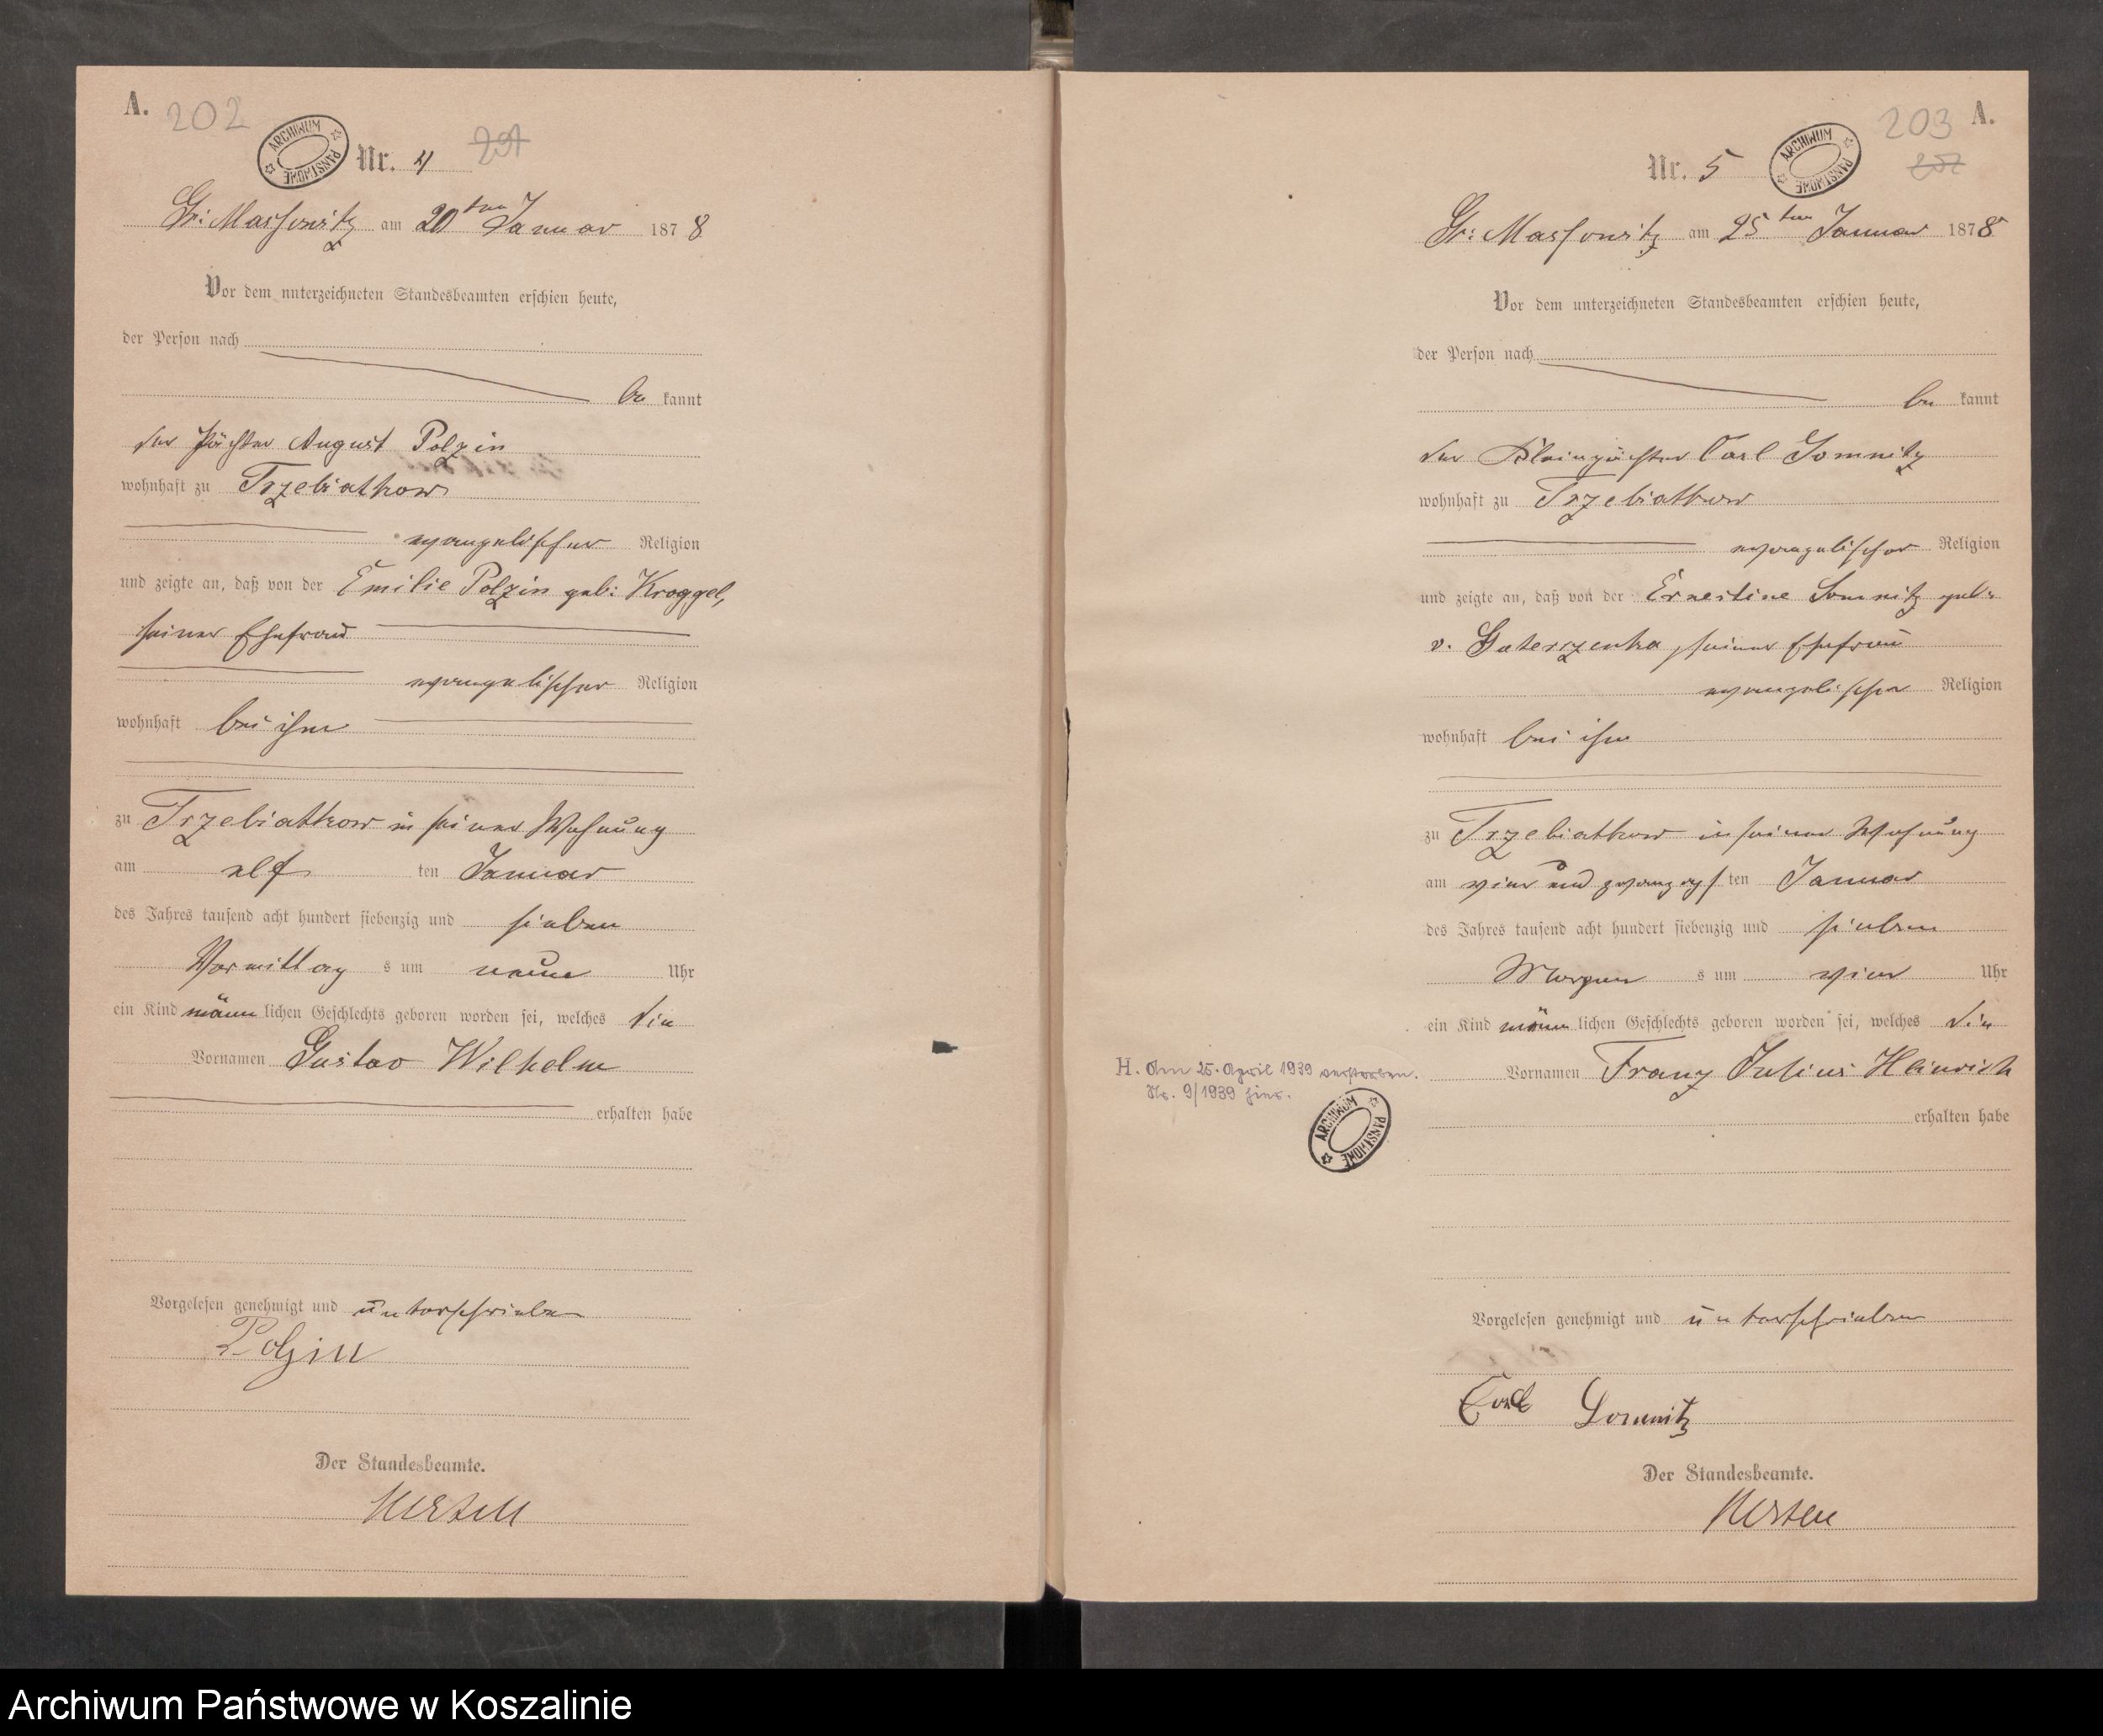 A. 202
ARCHIWUM PAŃSTWOWE
Nr. 4 201
Gr: Massowitz am 20ten Januar 1878
Vor dem unterzeichneten Standesbeamten erschien heute,
der Person nach
be kannt
der Pächter August Polzin
wohnhaft zu Trzebiatkow
evangelischer Religion
und zeigte an, daß von der Emilie Polzin geb: Kroggel,
seiner Ehefrau
evangelischer Religion
wohnhaft bei ihm
zu Trzebiatkow in seiner Wohnung
am elf ten Januar
des Jahres tausend acht hundert siebenzig und sieben
Vormittag s um neun Uhr
ein Kind männ lichen Geschlechts geboren worden sei, welches die
Vornamen Gustav Wilhelm
erhalten habe
Vorgelesen genehmigt und unterschrieben
Polzin
Der Standesbeamte.
203 A.
Nr. 5 ARCHIWUM PAŃSTWOWE 202
Gr: Massowitz am 25ten Januar 1878
Vor dem unterzeichneten Standesbeamten erschien heute,
der Person nach
be kannt
der Kleinpächter Carl Somnitz
wohnhaft zu Trzebiatkow
evangelischer Religion
und zeigte an, daß von der Ernestine Somnitz geb:
v. seiner Ehefrau
evangelischer Religion
wohnhaft bei ihm
zu Trzebiatkow in seiner Wohnung
am vier und zwanzigs ten Januar
des Jahres tausend acht hundert siebenzig und sieben
Morgen s um vier Uhr
ein Kind männ lichen Geschlechts geboren worden sei, welches die
H. Am 25. April 1939 verstorben.
Nr. 9/1939 hier.
ARCHIWUM PAŃSTWOWE
Vornamen Franz Julius Heinrich
erhalten habe
Vorgelesen genehmigt und unterschrieben
Carl Somnitz
Der Standesbeamte.
Archiwum Państwowe w Koszalinie